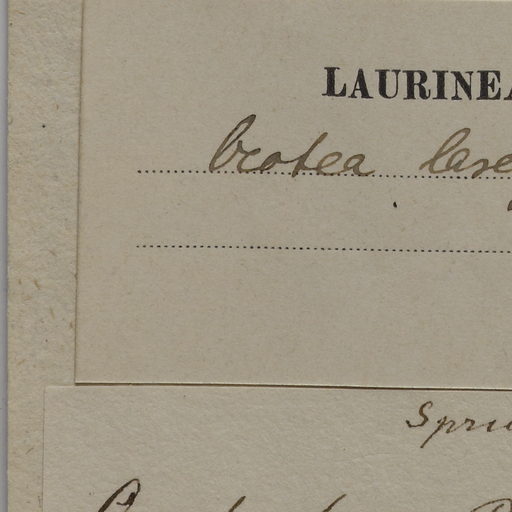 LAURINEA
Ocotea lase
Spru